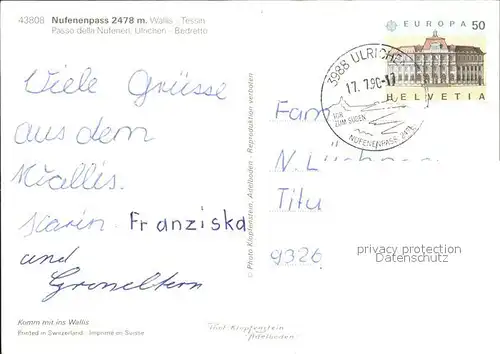 43808 Nufenenpass 2478 m. Wallis - Tessin
Passo della Nufenen, Ulrichen - Bedretto
EUROPA 50
HELVETIA
3988 ULRICHEN
17. 7. 90-17
TOR
ZUM SÜDEN
NUFENENPASS 2478
Viele Grüsse
aus dem
Wallis.
Karin Franziska
und
Groneltern
Fam
N.
Titu
9326
privacy protection
Datenschutz
© Photo Klopfenstein, Adelboden - Reproduktion verboten
Komm mit ins Wallis
Printed in Switzerland Imprimé en Suisse
Phot. Klopfenstein
Adelboden